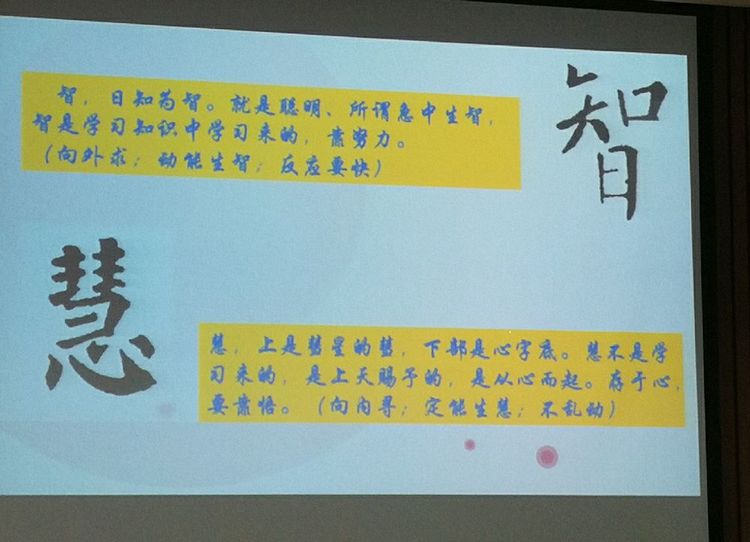 智，日知为智。就是聪明、所谓急中生智，
智是学习知识中学习来的，靠努力。
（向外求；动能生智；反应要快）
智
慧
慧，上是彗星的彗，下部是心字底。慧不是学
习来的，是上天赐予的，是从心而起。存于心，
要靠悟。（向内寻；定能生慧；不乱动）